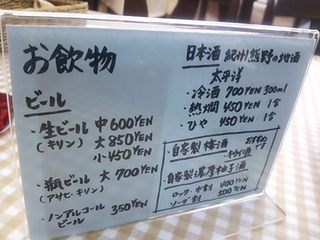 お飲物
ビール
・生ビール 中600YEN
(キリン) 大850YEN
小450YEN
・瓶ビール 大700YEN
(アサヒ・キリン)
・ノンアルコール 350YEN
ビール
日本酒 紀州熊野の地酒
太平洋
・冷酒 700YEN 300ml
・熱燗 450YEN 1合
・ひや 450YEN 1合
・自家製梅酒
・自家製濃厚柚子酒
ロック・水割 400YEN
ソーダ割 500YEN